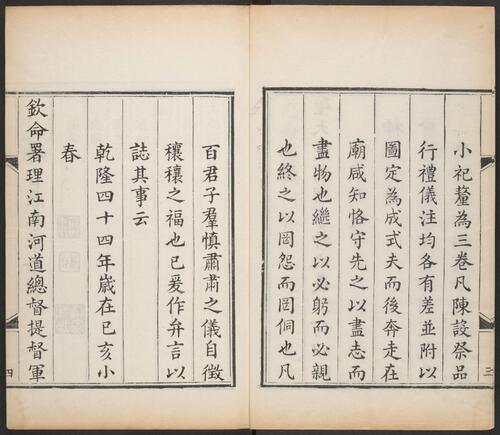 小祀釐為三卷凡陳設祭品
行禮儀注均各有差並附以
圖定為成式夫而後奔走在
廟咸知恪守先之以盡志而
盡物也繼之以必躬而必親
也終之以罔怨而罔恫也凡
三
百君子羣慎肅肅之儀自徵
穰穰之福也已爰作弁言以
誌其事云
乾隆四十四年嵗在已亥小
春
欽命署理江南河道總督提督軍
四